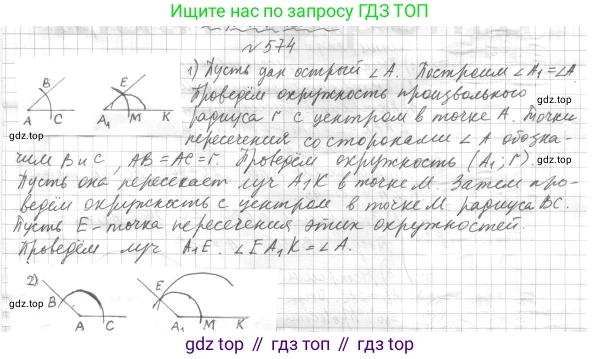 Ищите нас по запросу ГДЗ ТОП
№ 574
1) Пусть дан острый ∠A. Построим ∠A₁=∠A
B E
Проведём окружность произвольного
gdz.top
A C A₁ M K
радиуса r с центром в точке A. Точки
пересечения со сторонами ∠A обозна-
gdz.top gdz.top
чим B и C, AB=AC=r. Проведём окружность (A₁; r).
Пусть она пересекает луч A₁K в точке M. Затем про-
ведём окружность с центром в точке M радиуса BC.
Пусть E - точка пересечения этих окружностей.
gdz.top
Проведём луч A₁E. ∠EA₁K=∠A.
gdz.top gdz.top
2)
B E
gdz.top gdz.top
A C A₁ M K
gdz.top // gdz.top // gdz.top